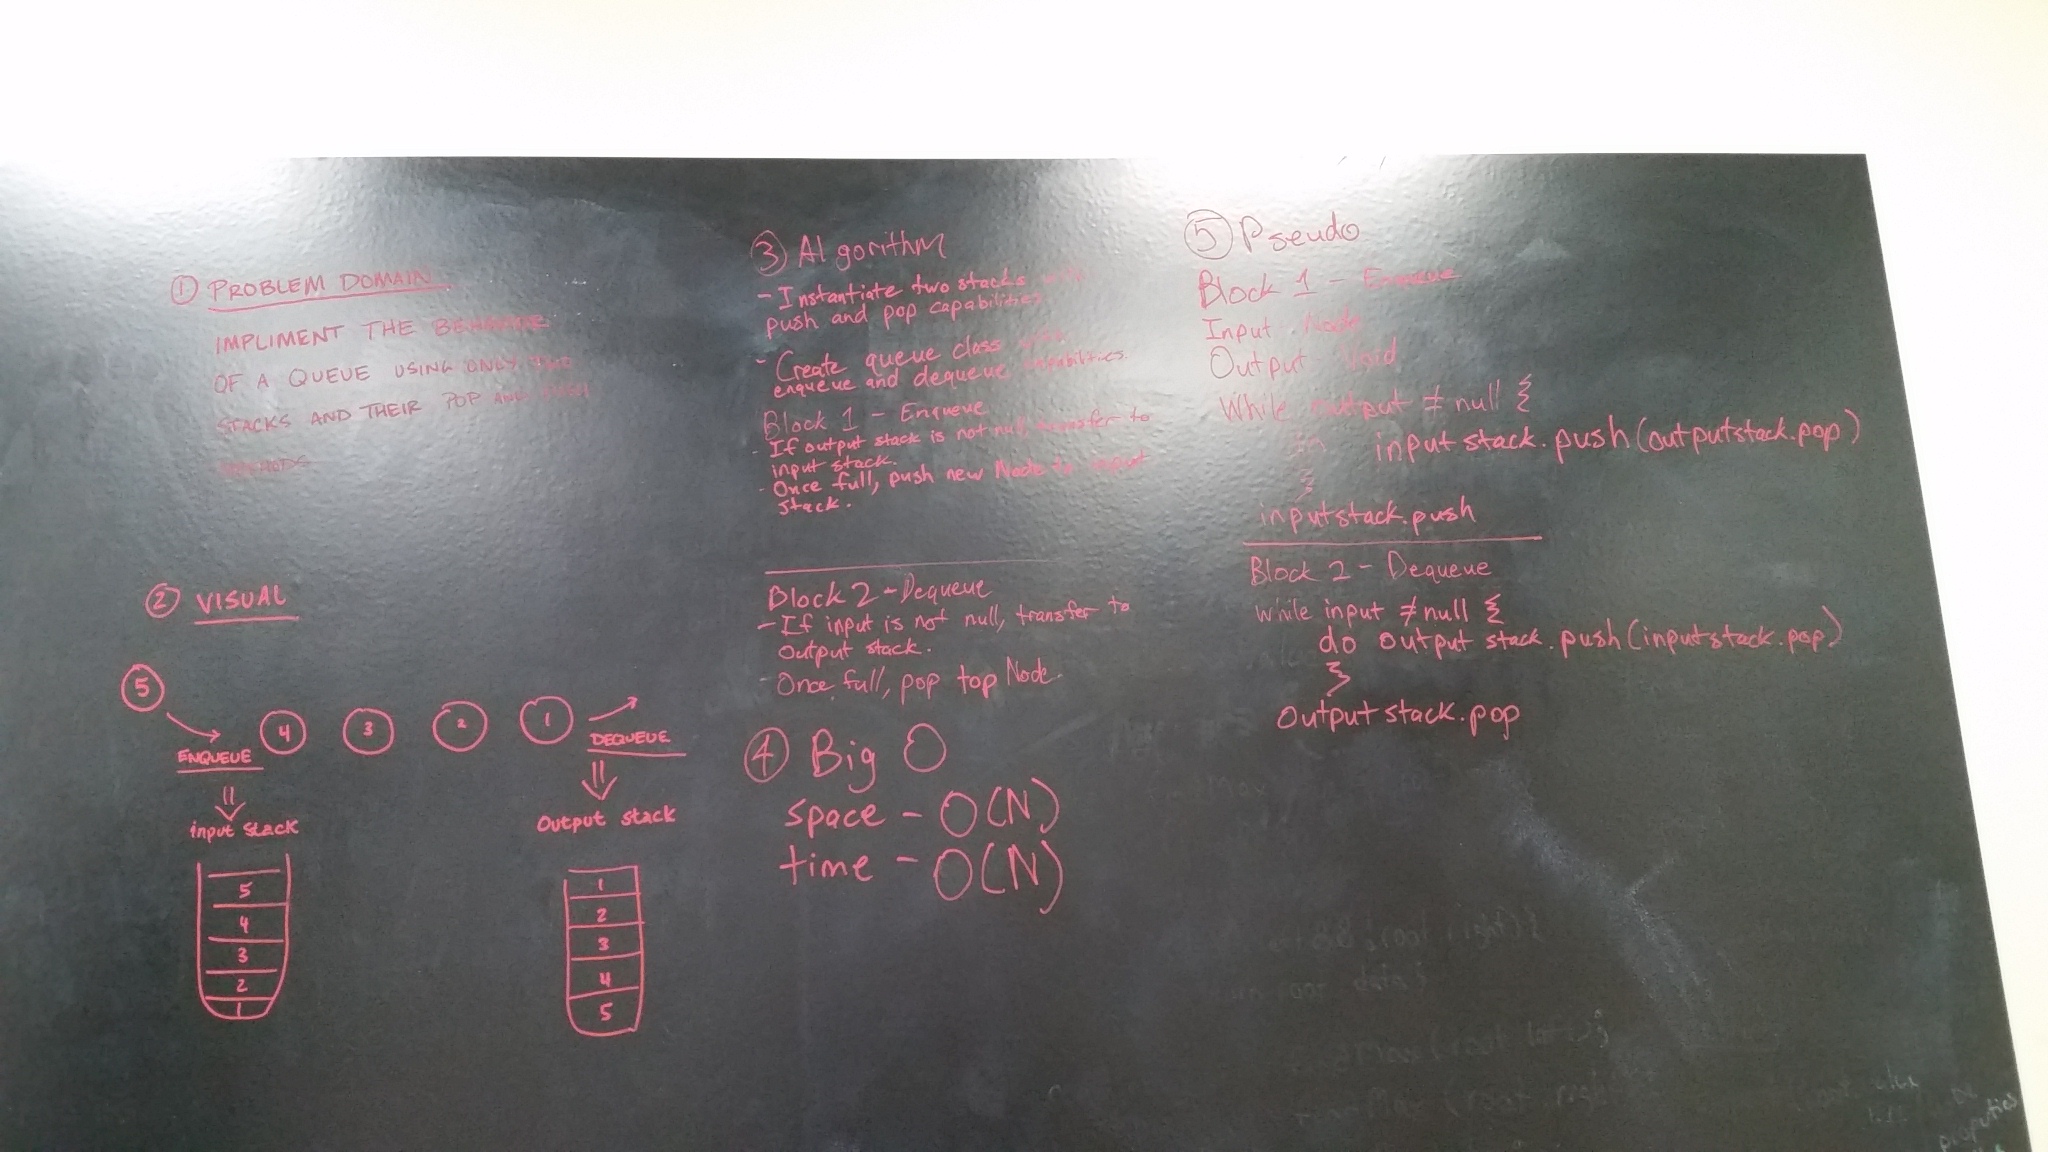 ① PROBLEM DOMAIN
IMPLIMENT THE BEHAVIOR
OF A QUEUE USING ONLY TWO
STACKS AND THEIR POP AND PUSH
METHODS
② VISUAL
5
4 3 2 1
ENQUEUE
DEQUEUE
input stack
Output stack
5
4
3
2
1
1
2
3
4
5
③ Algorithm
- Instantiate two stacks with
push and pop capabilities
- Create queue class with
enqueue and dequeue capabilities.
Block 1 - Enqueue
- If output stack is not null, transfer to
input stack.
- Once full, push new Node to input
stack.
Block 2 - Dequeue
- If input is not null, transfer to
Output stack.
- Once full, pop top Node.
④ Big O
space - O(N)
time - O(N)
⑤ Pseudo
Block 1 - Enqueue
Input - Node
Output - Void
While output ≠ null {
input stack.push(outputstack.pop)
}
inputstack.push
Block 2 - Dequeue
While input ≠ null {
do output stack.push(inputstack.pop)
}
Output stack.pop
root right) {
data }